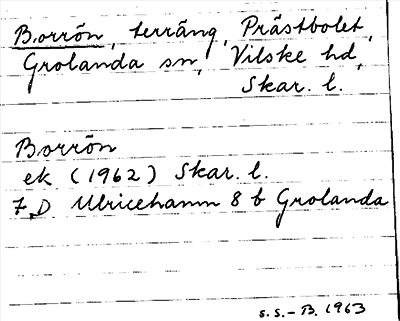 Borrön, terräng, Prästbolet,
Grolanda sn, Vilske hd,
Skar. l.
Borrön
ek (1962) Skar. l.
7 D Ulricehamn 8 b Grolanda
S.S.-B. 1963